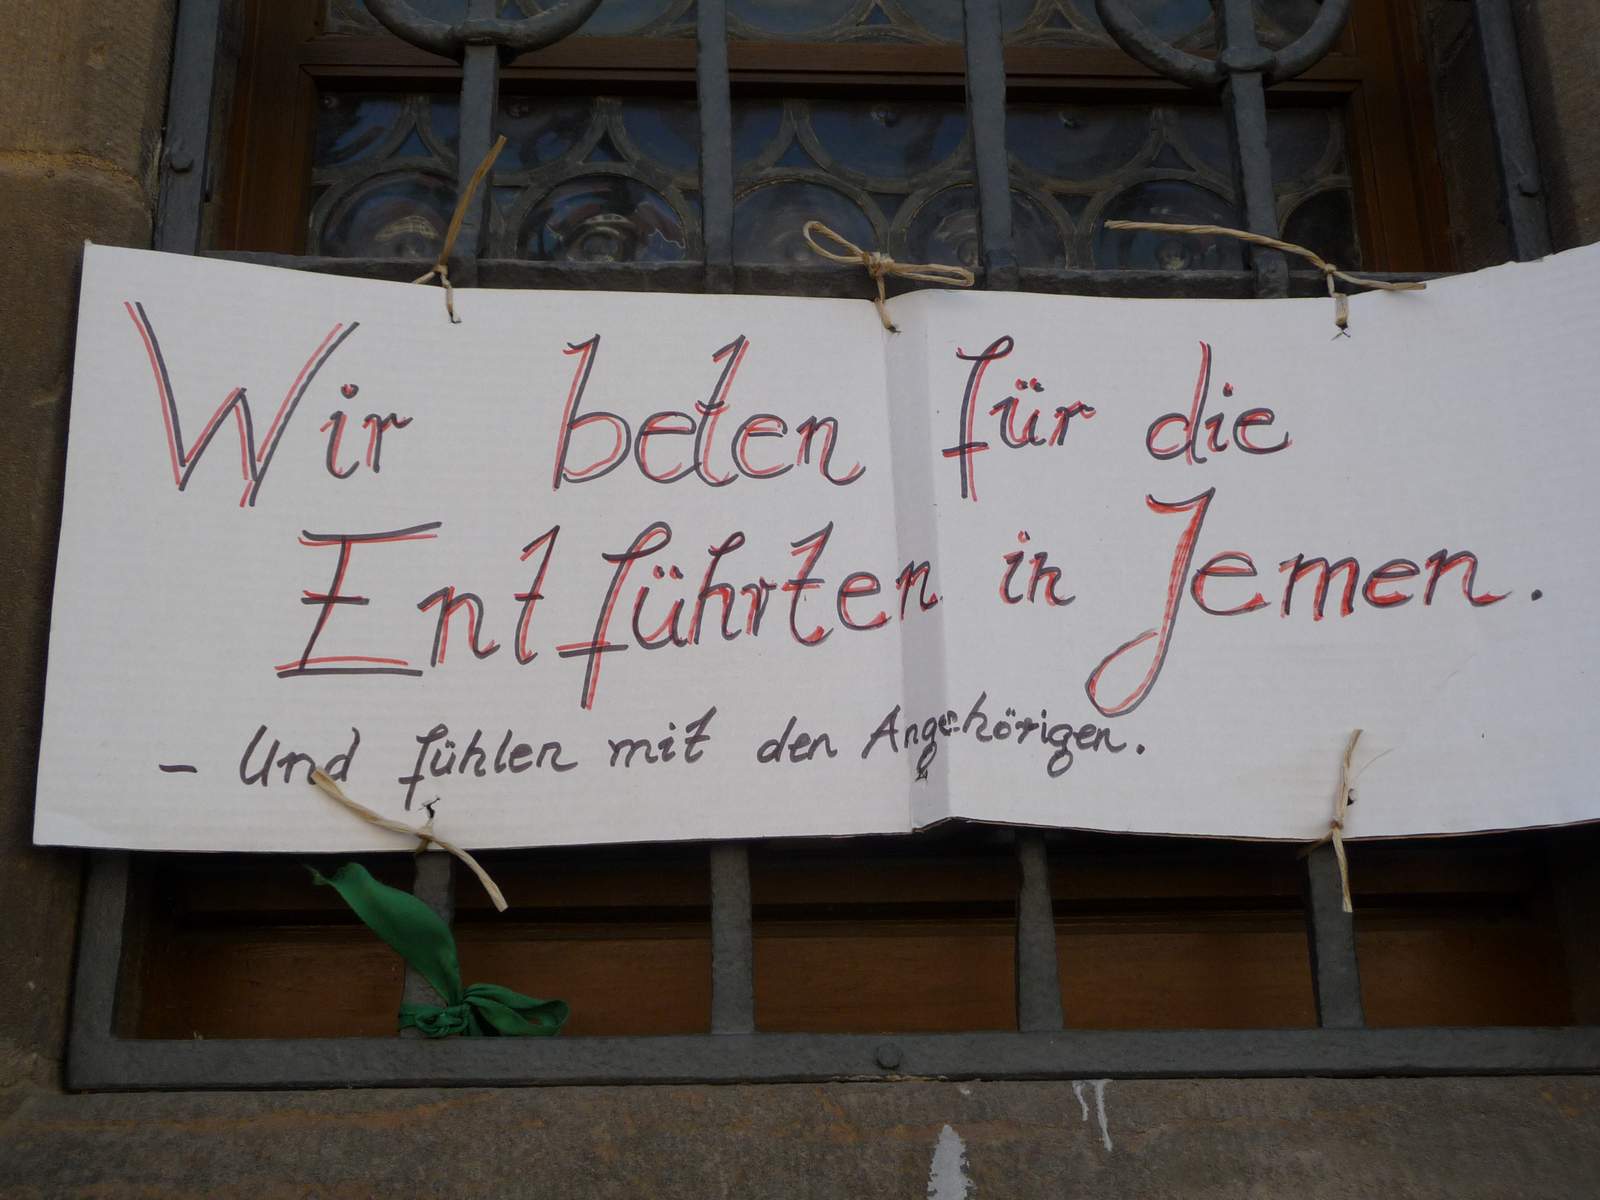 Wir beten für die
Entführten in Jemen.
- Und fühlen mit den Angehörigen.